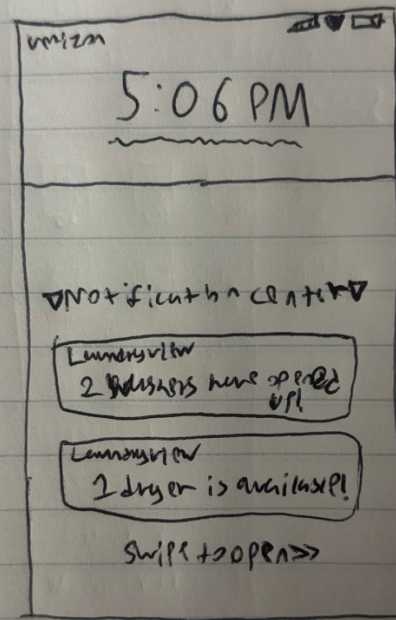 verizon
5:06 PM
Notification center
Laundryview
2 washers have opened
up!
Laundryview
1 dryer is available!
swipe to open >>